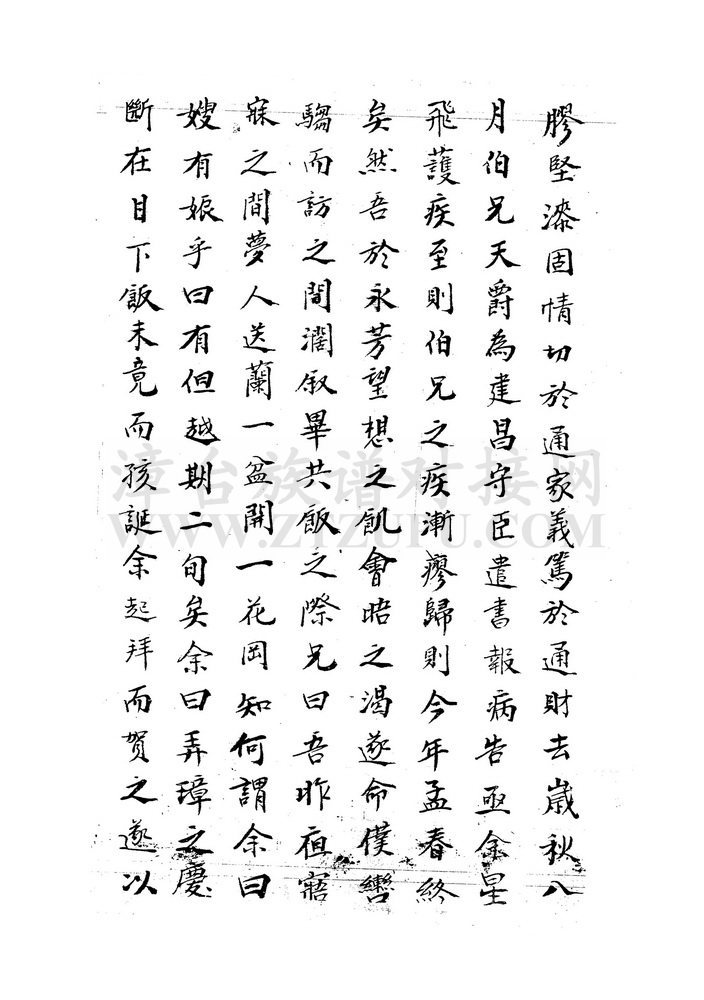 膠堅漆固情切於通家義篤於通財去歲秋八
月伯兄天爵為建昌守臣遣書報病告亟余星
飛護疾至則伯兄之疾漸瘳歸則今年孟春終
矣然吾於永芳望想之飢會晤之渴遂命僕轡
騶而訪之間濶叙畢共飯之際兄曰吾昨夜寤
寐之間夢人送蘭一盆開一花罔知何謂余曰
嫂有娠乎曰有但越期二旬矣余曰弄璋之慶
斷在目下飯未竟而孩誕余起拜而賀之遂以
漳台族谱对接网
WWW.ZTZUPU.COM